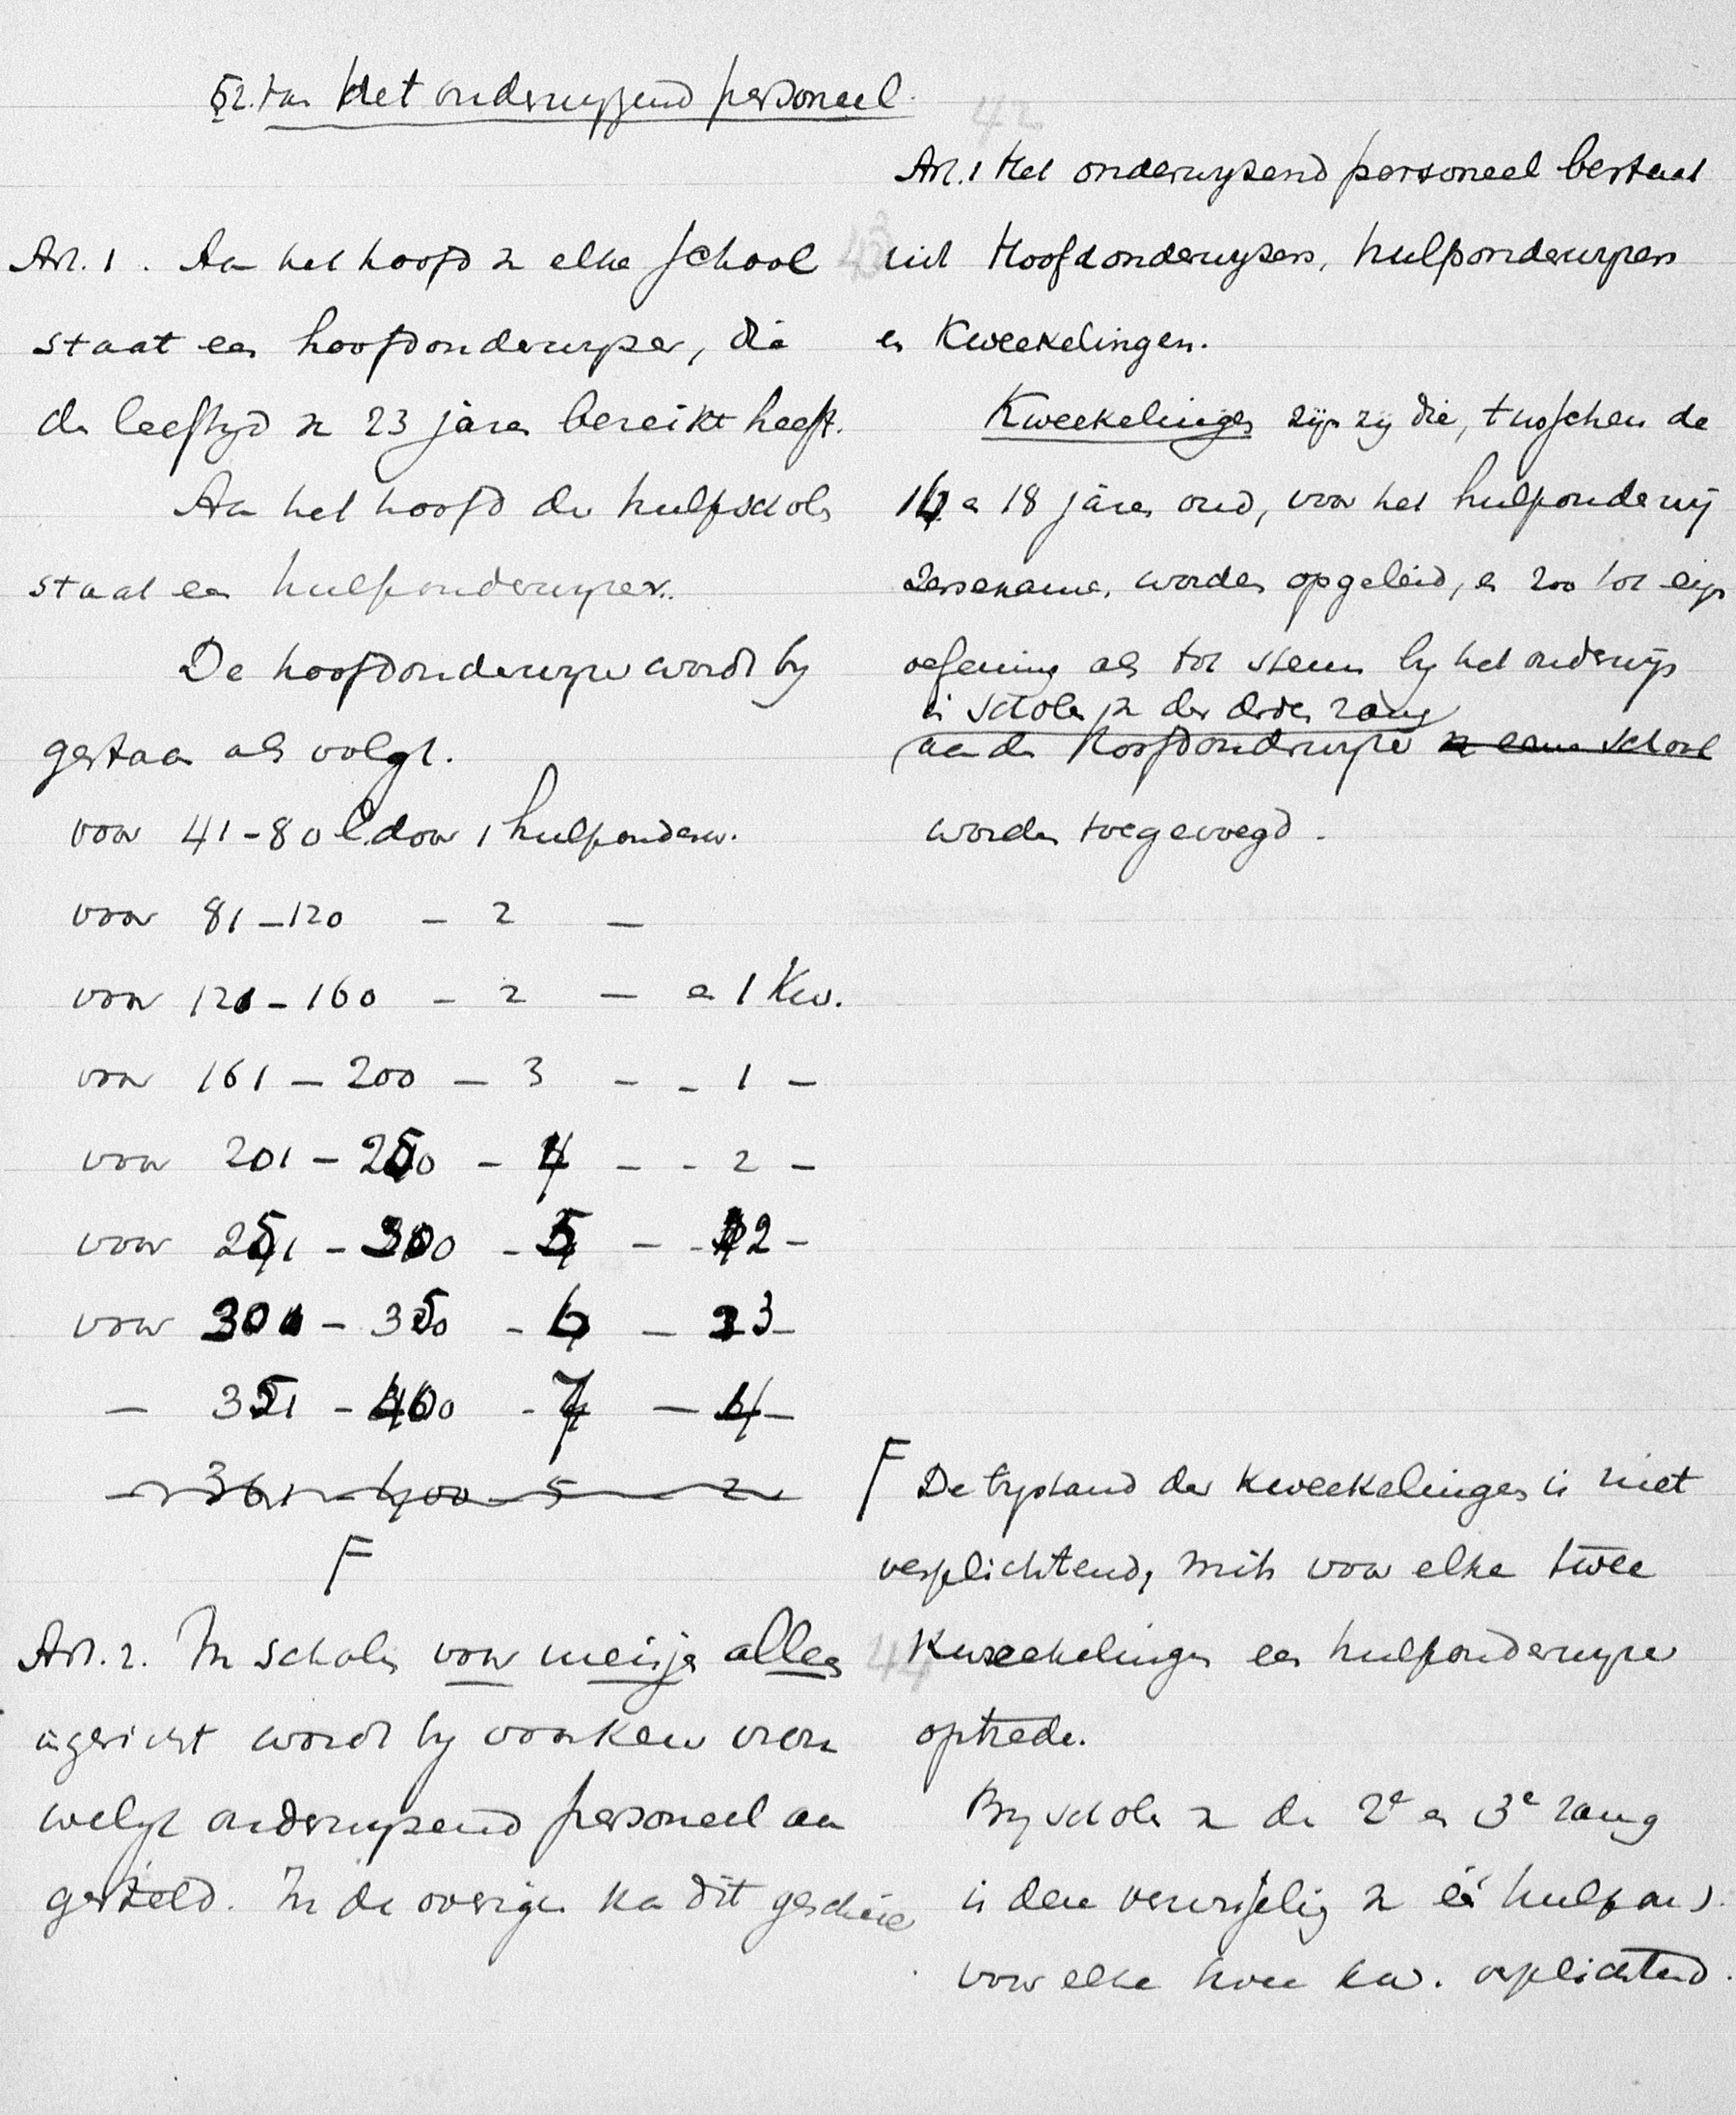 §2. Van Het onderwyzend personeel.
42
Art. 1 Het onderwyzend personeel bestaat
uit Hoofdonderwyzers, hulponderwyzers
en Kweekelingen.
Kweekelingen zijn zij die, tusschen de
16 en 18 jaren oud, voor het hulponderwij
zersexamen, worden opgeleid, en zoo tot eigen
oefening als tot steun by het onderwijs
in scholen van den derden rang
aan den hoofdonderwyzer van eene school
worden toegevoegd.
43
Art. 1. Aan het hoofd van elke school
staat een hoofdonderwyzer, die
den leeftyd van 23 jaren bereikt heeft.
Aan het hoofd der hulpscholen
staat een hulponderwyzer.
De hoofdonderwyzer wordt by
gestaan als volgt.
voor 41 - 80 l. door 1 hulponderw.
voor 81 - 120 - 2 -
voor 121 - 160 - 2 - en 1 Kw.
voor 161 - 200 - 3 - - 1 -
voor 201 - 250 - 4 - - 2 -
voor 251 - 300 - 5 - - 2 -
voor 301 - 350 - 6 - 3 -
- 351 - 400 - 7 - 4 -
- 361 - 400 - 5 - 2 -
F
F De bystand der Kweekelingen is niet
verplichtend, mits voor elke twee
Kweekelingen een hulponderwyzer
optrede.
By scholen van den 2e en 3e rang
is deze verwisseling van één hulpond.
voor elke twee kw. verplichtend.
44
Art. 2. In scholen voor meisjes alleen
ingericht wordt by voorkeur vrou
welyk onderwyzend personeel aan
gesteld. In de overige kan dit geschieden